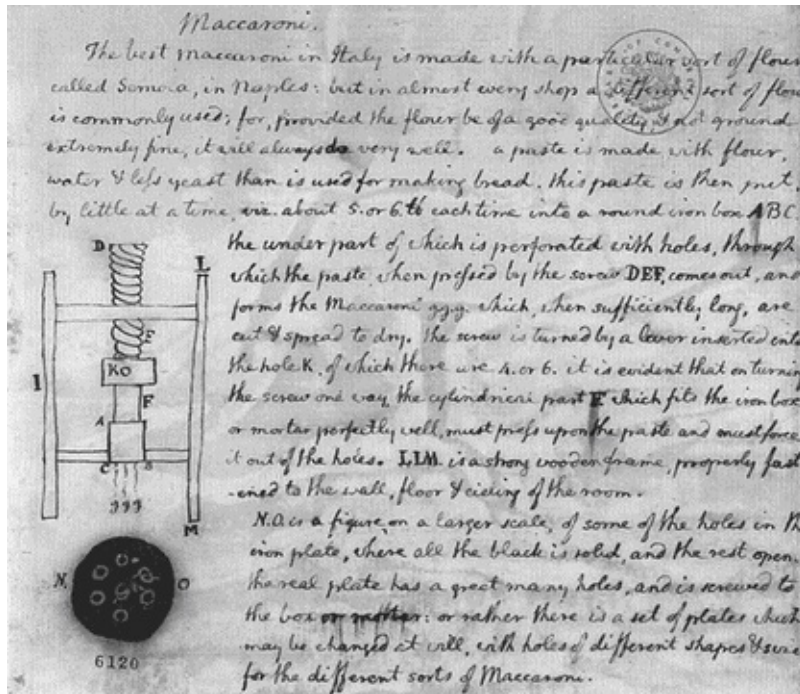 Maccaroni.
The best maccaroni in Italy is made with a particular sort of flour
called Semola, in Naples: but in almost every shop a different sort of flour
is commonly used; for, provided the flour be of a good quality, & not ground
extremely fine, it will always do very well. a paste is made with flour,
water & less yeast than is used for making bread. this paste is then put,
by little at a time, viz. about 5. or 6. ℔ each time into a round iron box ABC.
the under part of which is perforated with holes, through
which the paste, when pressed by the screw DEF, comes out, and
forms the Maccaroni g.g.g. which, when sufficiently long, are
cut & spread to dry. the screw is turned by a lever inserted into
the hole K, of which there are 4. or 6. it is evident that on turning
the screw one way, the cylindrical part F which fits the iron box
or mortar perfectly well, must press upon the paste and must force
it out of the holes. LLM. is a strong wooden frame, properly fast
-ened to the wall, floor & cieling of the room.
N.O. is a figure, on a larger scale, of some of the holes in the
iron plate, where all the black is solid, and the rest open.
the real plate has a great many holes, and is screwed to
the box or mortar: or rather there is a set of plates which
may be changed at will, with holes of different shapes & sizes
for the different sorts of Maccaroni.
D
L
E
I
KO
F
A
C B
ggg
M
N. O
6120